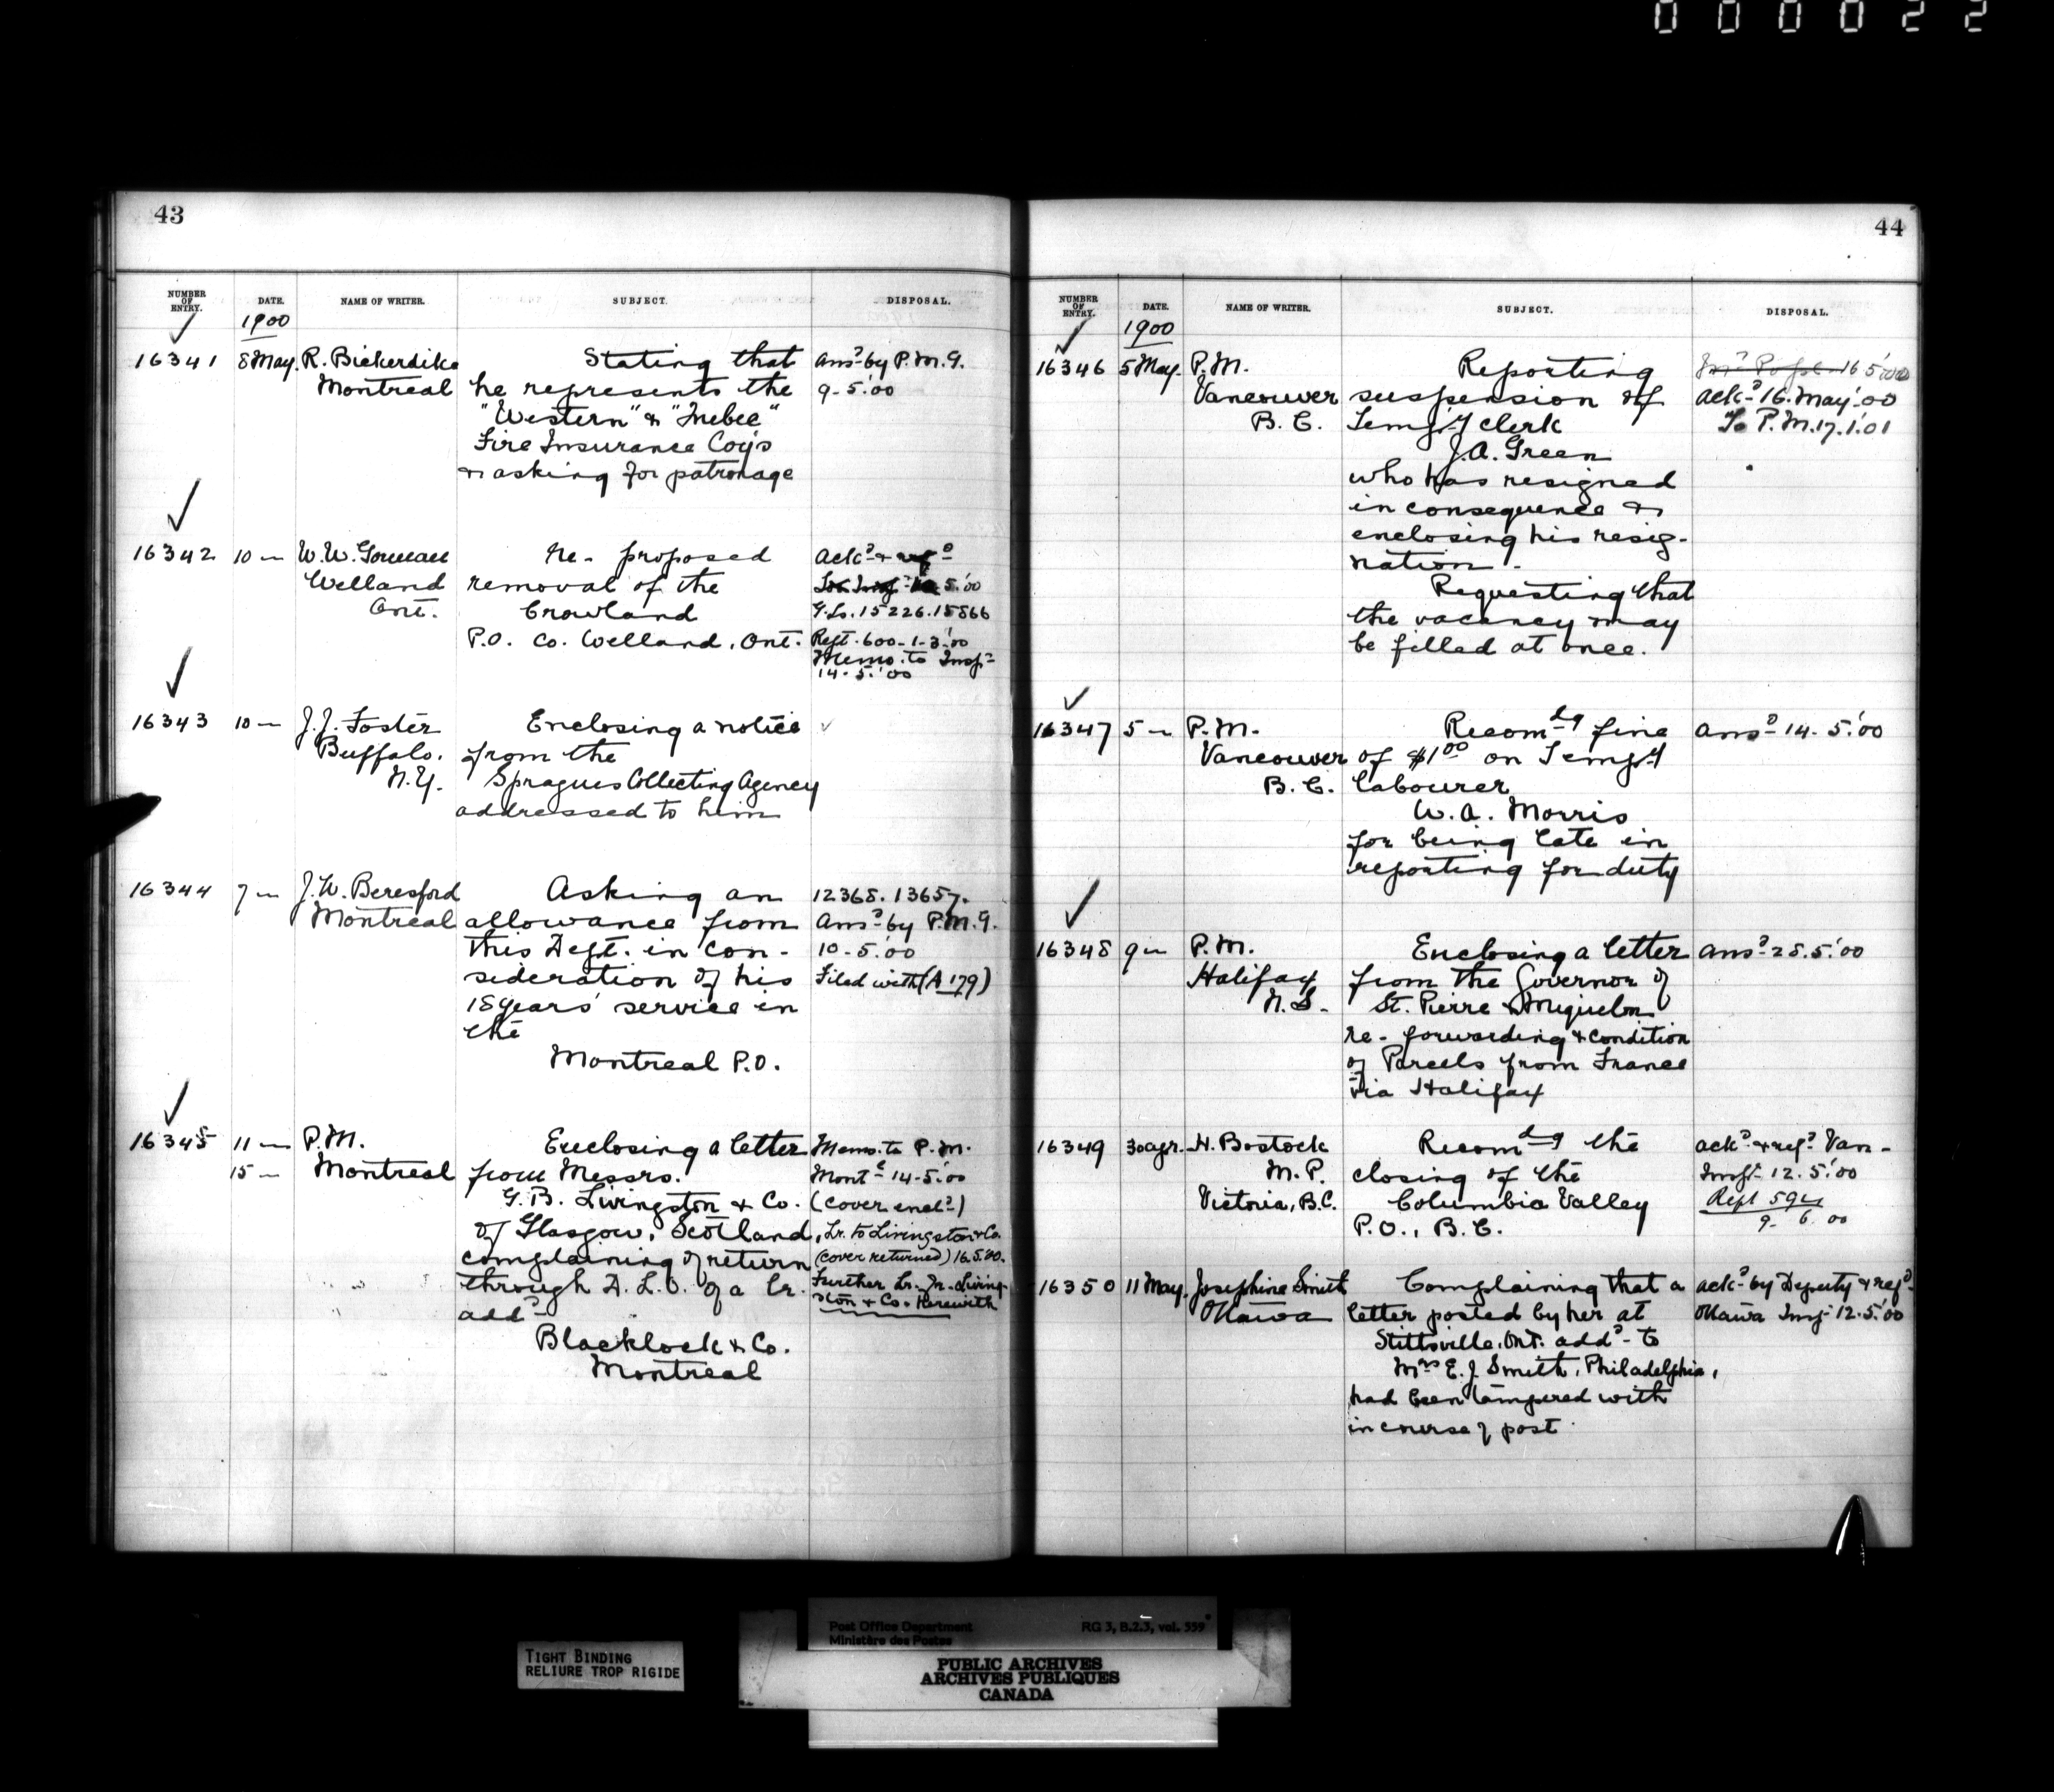 000022
43
NUMBER OF ENTRY. DATE. NAME OF WRITER. SUBJECT. DISPOSAL.
1900
16341 8 May. R. Bickerdike Stating that Ansd by P.M.G.
Montreal he represents the 9-5.'00
"Western" & "Quebec"
Fire Insurance Coys
& asking for patronage
16342 10 — W.W. Re- proposed Ackd & refd
Welland removal of the 5.'00
Ont. Crowland 15226.15866
P.O. Co. Welland, Ont. Rept. 600-1-3.'00
Memo. to Insp.
14-5.'00
16343 10 — J.J. Foster Enclosing a notice
Buffalo. from the
N.Y. Spragues Collecting Agency
addressed to him
16344 7 — J.W. Beresford Asking an 12368.13657.
Montreal allowance from Ansd by P.M.G.
this Dept. in con- 10-5.'00
sideration of his Filed with (A 179)
18 years' service in
the
Montreal P.O.
16345 11 — P.M. Enclosing a letter Memo. to P.M.
15 — Montreal from Messrs. Montl 14-5.'00
G.B. Livingston & Co. (cover encld)
of Glasgow, Scotland, Lr. to Livingston & Co.
complaining of return (cover returned) 16.5.'00.
through D.L.O. of a lr. Further Lr. fr. Living-
addd ston & Co. Herewith
Blacklock & Co.
Montreal
44
NUMBER OF ENTRY. DATE. NAME OF WRITER. SUBJECT. DISPOSAL.
1900
16346 5 May. P.M. Reporting 16 5.'00
Vancouver suspension of Ackd 16. May.'00
B.C. Tempy clerk To P.M. 17.1.'01
J.A. Green
who has resigned
in consequence &
enclosing his resig-
nation.
Requesting that
the vacancy may
be filled at once.
16347 5 — P.M. Recomdg fine Ansd 14.5.'00
Vancouver of $1.00 on Tempy
B.C. labourer
W.A. Morris
for being late in
reporting for duty
16348 9 — P.M. Enclosing a letter Ansd 28.5.'00
Halifax from the Governor of
N.S. St. Pierre & Miquelon
re- forwarding & condition
of Parcels from France
via Halifax
16349 30 apr. H. Bostock Recomdg the ackd & refd Van-
M.P. closing of the Inspr 12.5.'00
Victoria, B.C. Columbia Valley Rept 594
P.O., B.C. 9. 6. 00
16350 11 May. Josephine Smith Complaining that a ackd by Deputy & refd
Ottawa letter posted by her at Ottawa Insp 12.5.'00
Stittsville, Ont. addd to
Mrs E.J. Smith, Philadelphia,
had been tampered with
in course of post
Post Office Department RG 3, B.2.3, vol. 559
Ministère des Postes
TIGHT BINDING
RELIURE TROP RIGIDE
PUBLIC ARCHIVES
ARCHIVES PUBLIQUES
CANADA